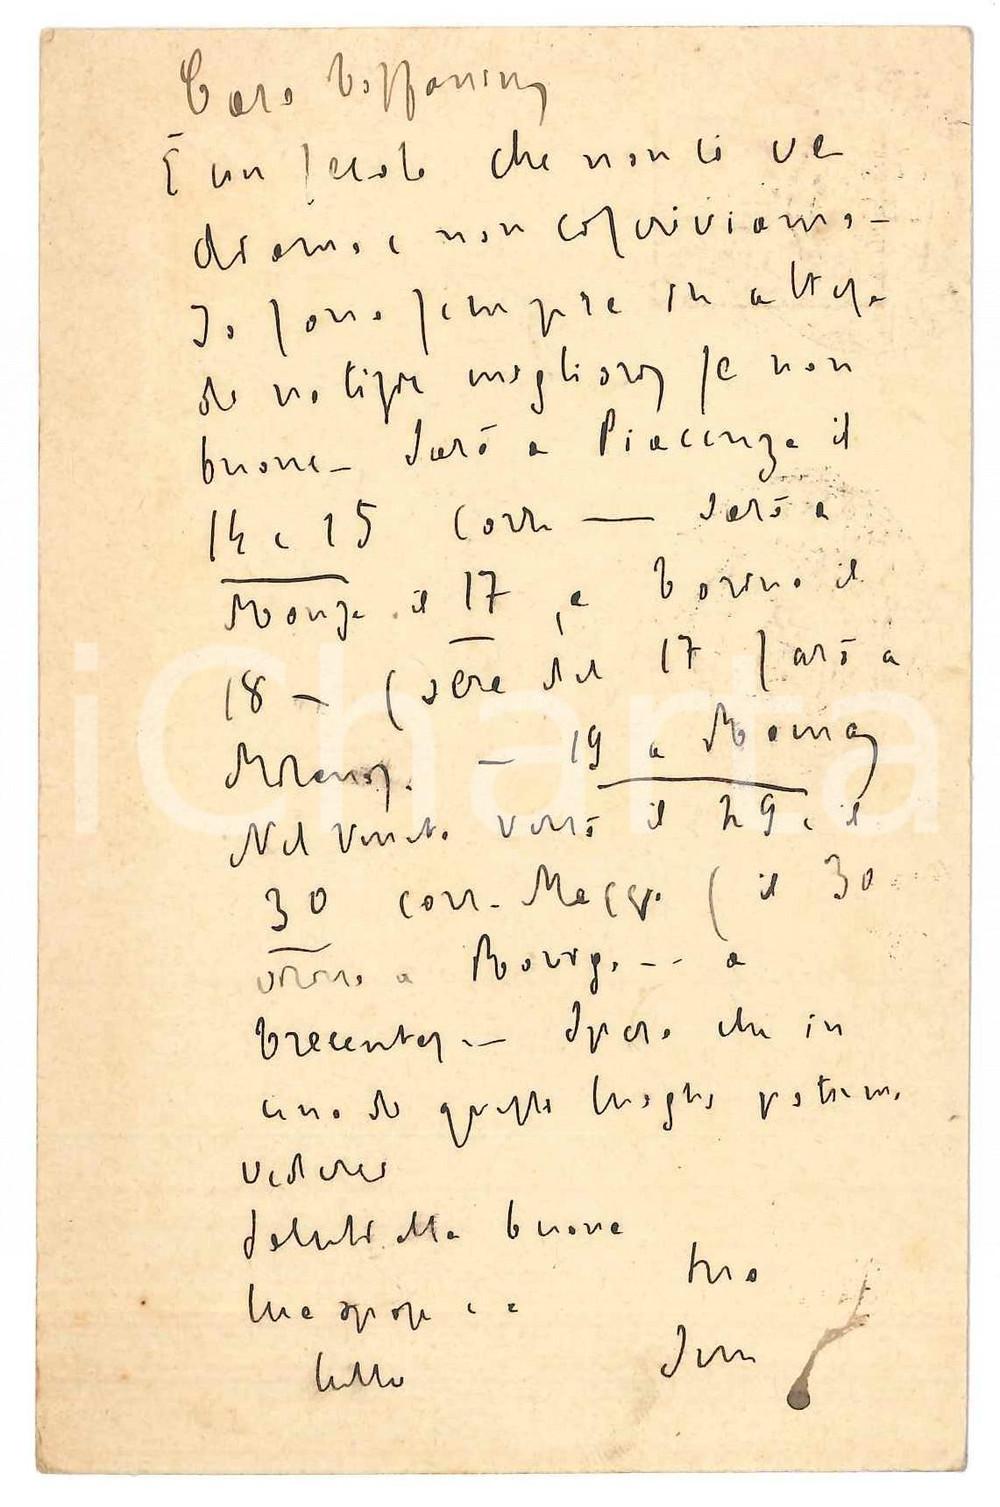 Caro Toffanin,
È un secolo che non ci ve
diamo e non ci scriviamo -
Io sono sempre in attesa
di notizie migliori se non
buone - Sarò a Piacenza il
14 e 15 corr. — sarò a
Monza il 17, a Torino il
18 - (sera del 17 sarò a
Milano). - 19 a
Nel Veneto verrò il 29 e il
30 corr. Maggio (il 30
a Rovigo -- a
Trecenta). - Spero che in
uno di questi luoghi potremo
vederci
Saluti alla buona
tua sposa e a
tutti
tuo
iCharta